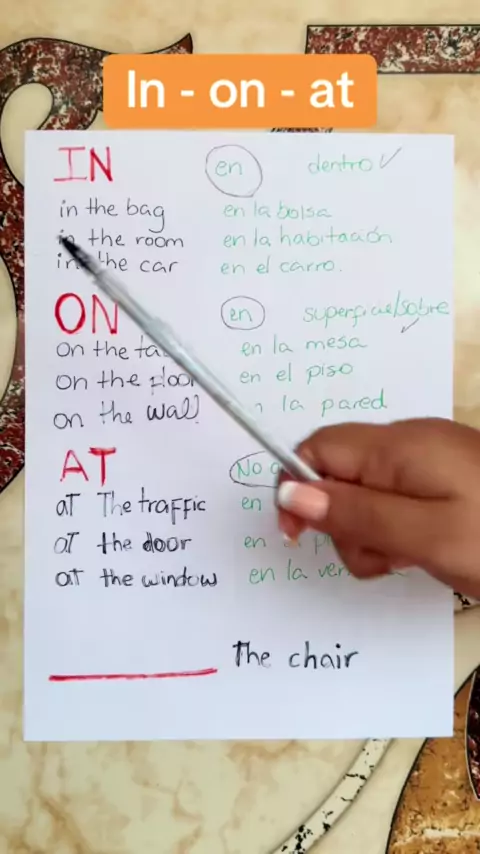 In - on - at
IN en dentro
in the bag en la bolsa
in the room en la habitación
in the car en el carro.
ON en superficie/sobre
on the en la mesa
on the floor en el piso
on the wall la pared
AT No
aT The traffic en
aT the door en
aT the window en la
The chair